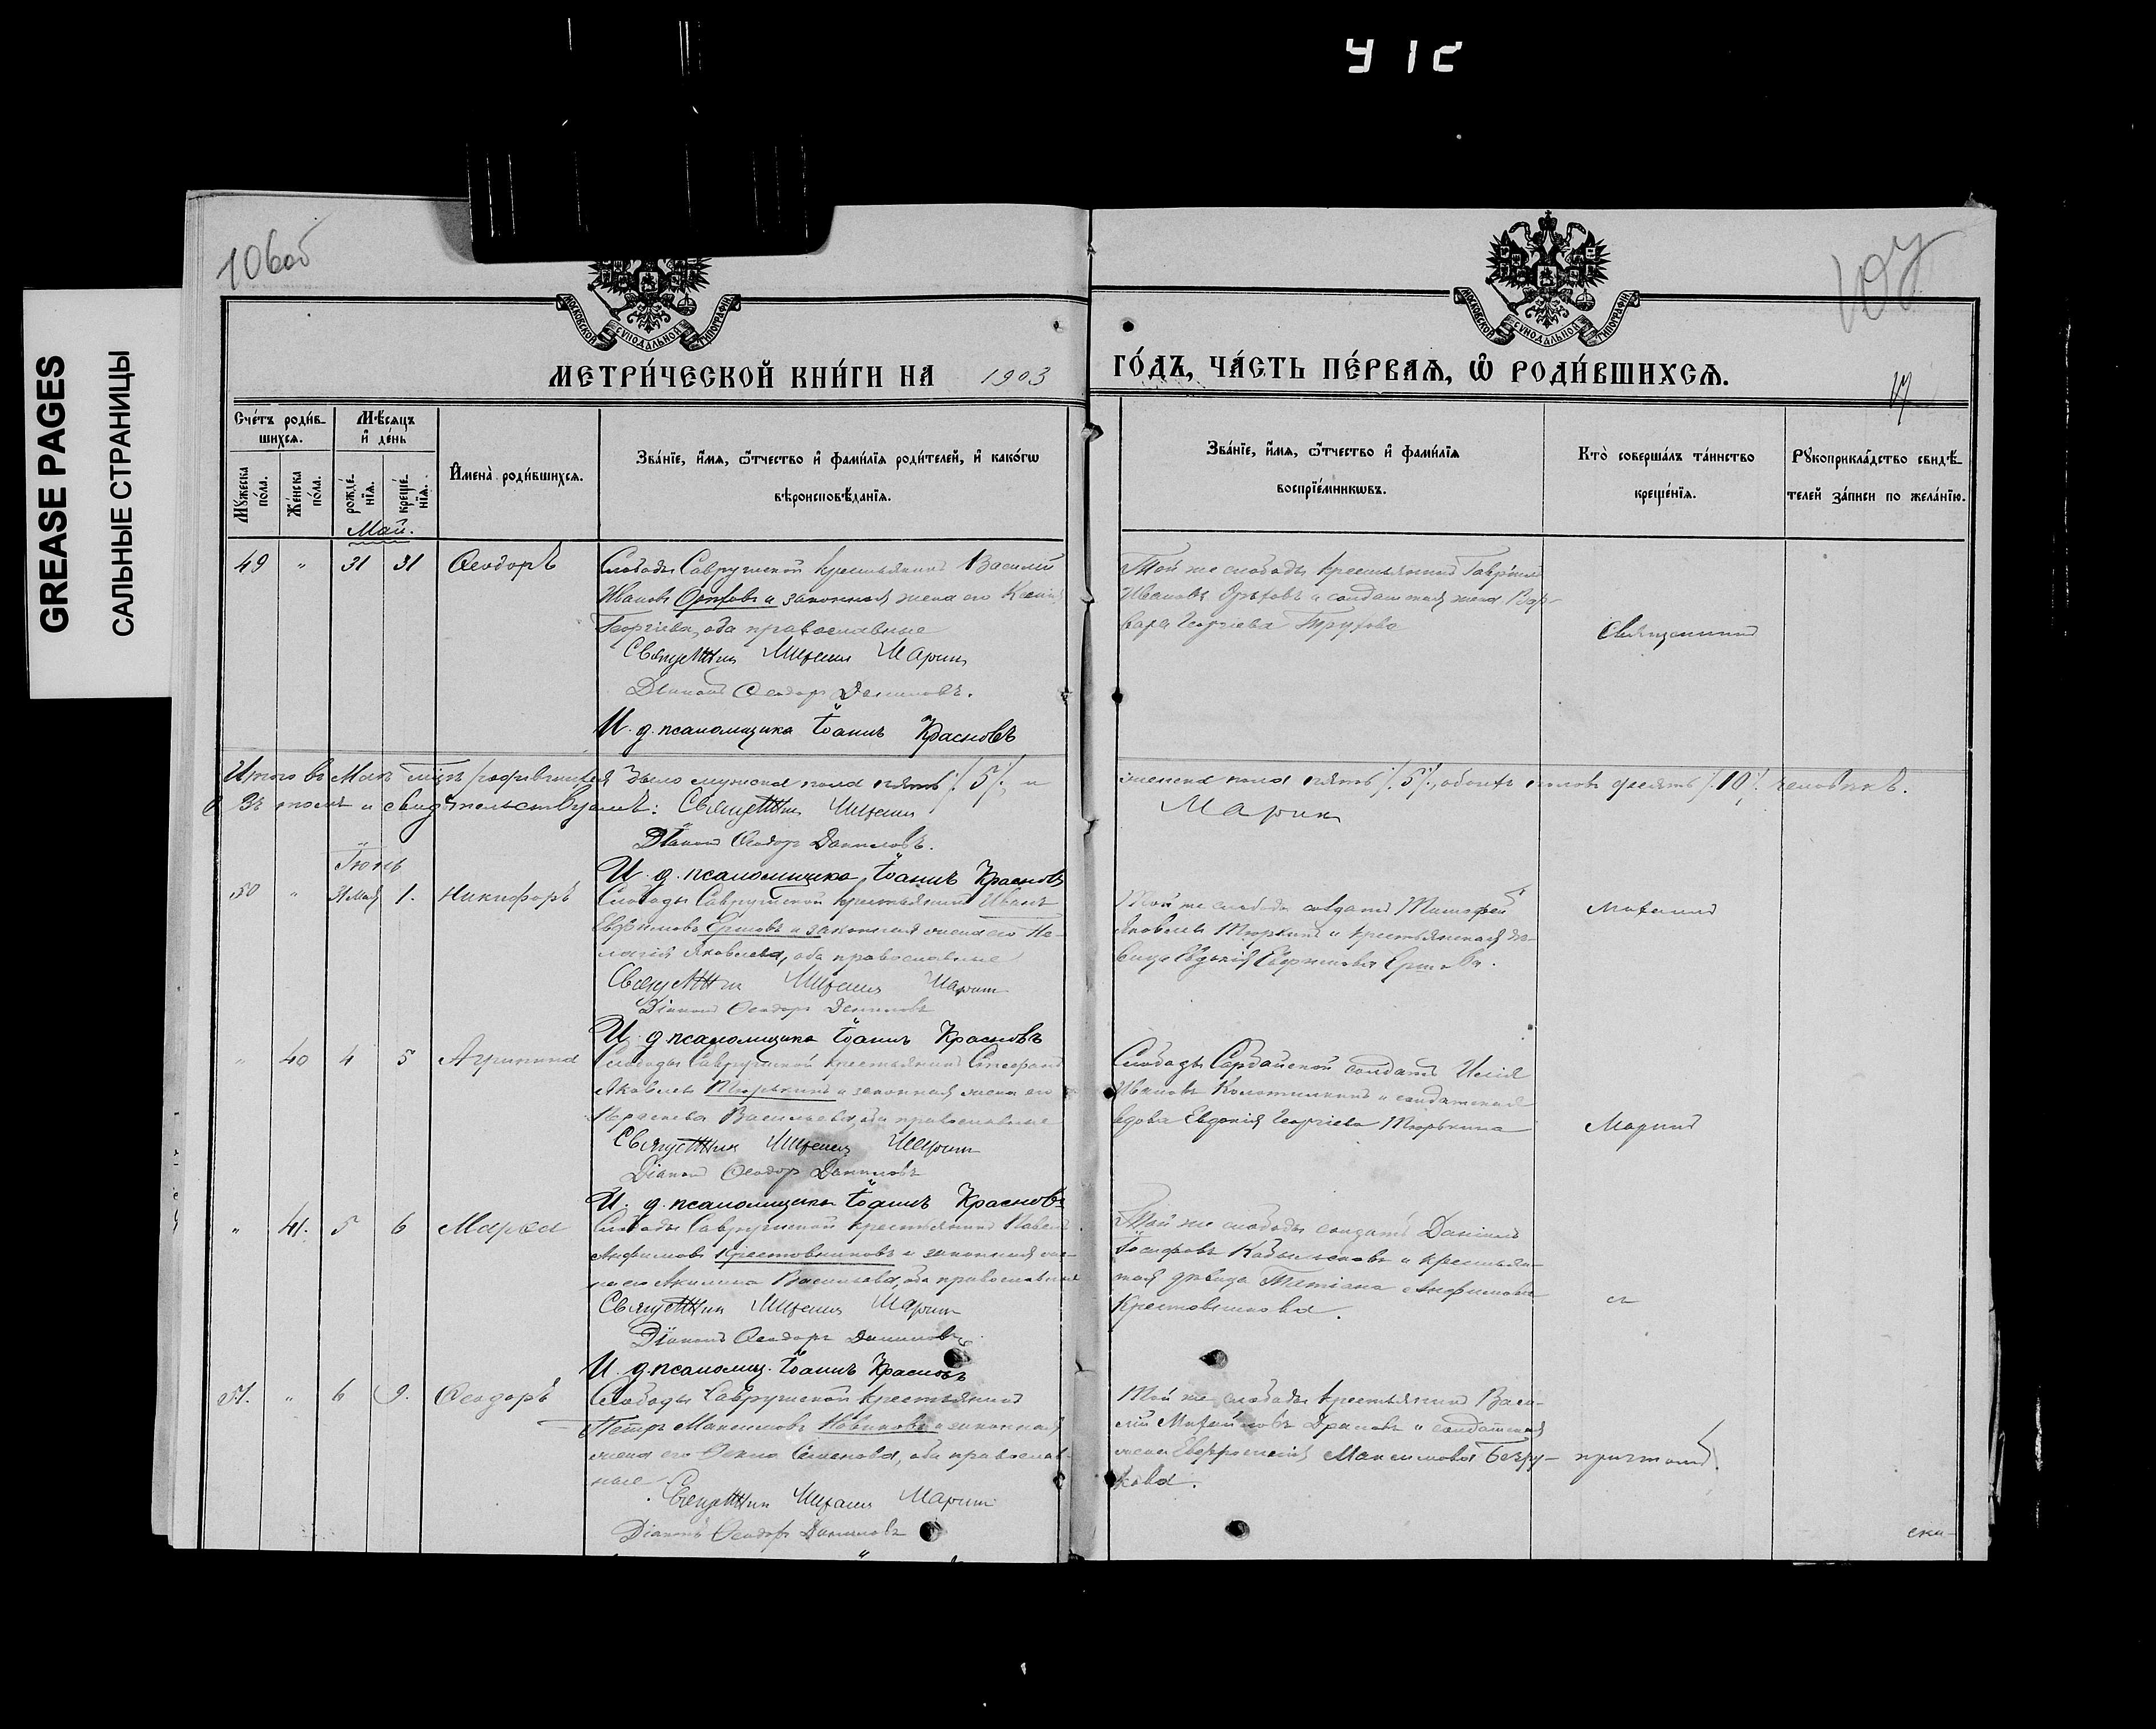 УІС
GREASE PAGES
САЛЬНЫЕ СТРАНИЦЫ
106об
107
МОСКОВСКОЙ СѴНОДАЛЬНОЙ ТИПОГРАФІИ
МОСКОВСКОЙ СѴНОДАЛЬНОЙ ТИПОГРАФІИ
МЕТРИ́ЧЕСКОЙ КНИ́ГИ НА 1903 ГО́ДЪ, ЧА́СТЬ ПЕ́РВАѦ, Ѡ РОДИ́ВШИХСѦ.
Сче́тъ роди́в-
шихсѧ.
Мѣ́сѧцъ
и҆ де́нь
Мꙋ́жеска
по́ла.
Же́нска
по́ла.
рожде́-
нїѧ.
креще́-
нїѧ.
И҆мена̀ роди́вшихсѧ.
Зва́нїе, и҆́мѧ, ѻ҆́тчество и҆ фами́лїѧ роди́телей, и҆ како́гѡ
вѣроисповѣ́данїѧ.
Зва́нїе, и҆́мѧ, ѻ҆́тчество и҆ фами́лїѧ
воспрїе́мникѡвъ.
Кто̀ соверша́лъ та́инство
креще́нїѧ.
Рꙋкоприкла́дство свидѣ́-
телей за́писи по жела́нїю.
Май.
49 " 31 31 Ѳеодоръ
Слободы Саврушской крестьянинъ Василій
Ивановъ Орѣховъ и законная жена его Ксенія
Георгіева, оба православные
Священникъ Михаилъ Маринъ
Діаконъ Ѳеодоръ Даниловъ.
И. д. псаломщика Іоаннъ Красновъ
Той же слободы крестьянинъ Гавріилъ
Ивановъ Орѣховъ и солдатская жена Вар-
вара Георгіева Трухова
Священникъ
Итого въ Маѣ мѣс. родившихся было мужска пола пять /5/, и женска пола пять /5/, обоего половъ десять /10/ человѣкъ.
Въ томъ и свидѣтельствуемъ: Священникъ Михаилъ Маринъ
Діаконъ Ѳеодоръ Даниловъ.
И. д. псаломщика Іоаннъ Красновъ
Іюнь
50 " 31 Мая 1. Никифоръ
Слободы Саврушской крестьянинъ Иванъ
Евфимовъ Ершовъ и законная жена его Пе-
лагія Яковлева, оба православные
Священникъ Михаилъ Маринъ
Діаконъ Ѳеодоръ Даниловъ
И. д. псаломщика Іоаннъ Красновъ
Той же слободы солдатъ Тимофей
Яковлевъ Тюркинъ и крестьянская дѣ-
вица Евдокія Евфимова Ершова.
Михаилъ
" 40 4 5 Агрипина
Слободы Саврушской крестьянинъ Стефанъ
Яковлевъ Тюрькинъ и законная жена его
Параскева Васильева, оба православные
Священникъ Михаилъ Маринъ
Діаконъ Ѳеодоръ Даниловъ
И. д. псаломщика Іоаннъ Красновъ
Слободы Сарбайской солдатъ Илія
Ивановъ и солдатская
вдова Евдокія Георгіева Тюрькина
Маринъ
" 41. 5 6 Марѳа
Слободы Саврушской крестьянинъ Павелъ
Анфимовъ Крестовниковъ и законная же-
на его Акилина Васильева, оба православные
Священникъ Михаилъ Маринъ
Діаконъ Ѳеодоръ Даниловъ
И. д. псаломщ. Іоаннъ Красновъ
Той же слободы солдатъ Даніилъ
Іосифовъ и крестьян-
ская дѣвица Татіана Анфимова
Крестовникова.
съ
51. " 6 9. Ѳеодоръ
Слободы Саврушской крестьянинъ
Петръ Максимовъ Новиковъ и законная
жена его Ѳекла Семенова, оба православ-
ные
Священникъ Михаилъ Маринъ
Діаконъ Ѳеодоръ Даниловъ
Той же слободы крестьянинъ Васи-
лій Михайловъ и солдатская
жена Евфросинія Максимова Безру-
кова.
причтомъ.